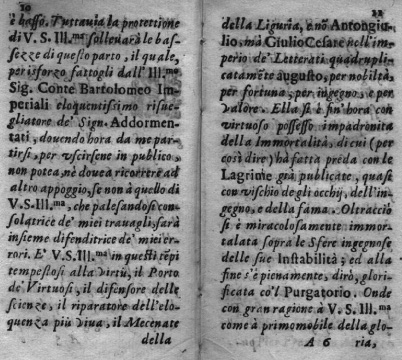 10
è basso. Tuttauia la protettione
di V. S. Ill.ma solleuarà le bas-
sezze di questo parto, il quale,
per isforzo fattogli dall' Ill.mo
Sig. Conte Bartolomeo Im-
periali eloquentissimo risue-
gliatore de' Sign. Addormen-
tati, douendo hora da me par-
tirsi, per vscirsene in publico,
non potea, nè douea ricorrere ad
altro appoggio, se non à quello di
V. S. Ill.ma, che palesandosi con-
solatrice de' miei trauagli, sarà
insieme difenditrice de' miei er-
rori. E' V. S. Ill.ma in questi tẽpi
tempestosi alla Virtù, il Porto
de' Virtuosi, il difensore delle
scienze, il riparatore dell' elo-
quenza più viua, il Mecenate
della
11
della Liguria, e nõ Antongiu-
lio, mà Giulio Cesare nell' im-
perio de' Letterati, quadrupli-
catamẽte augusto, per nobiltà,
per fortuna, per ingegno, e per
valore. Ella si è fin' hora con
virtuoso possesso impadronita
della Immortalità, di cui (per
così dire) hà fatta preda con le
Lagrime già publicate, quasi
con vischio degli occhi, dell' in-
gegno, e della fama. Oltracciò
si è miracolosamente immor-
talata sopra le Sfere ingegnose
delle sue Instabilità; ed alla
fine s'è pienamente, dirò, glori-
ficata co'l Purgatorio. Onde
con gran ragione à V. S. Ill.ma
come à primo mobile della glo-
A 6 ria,